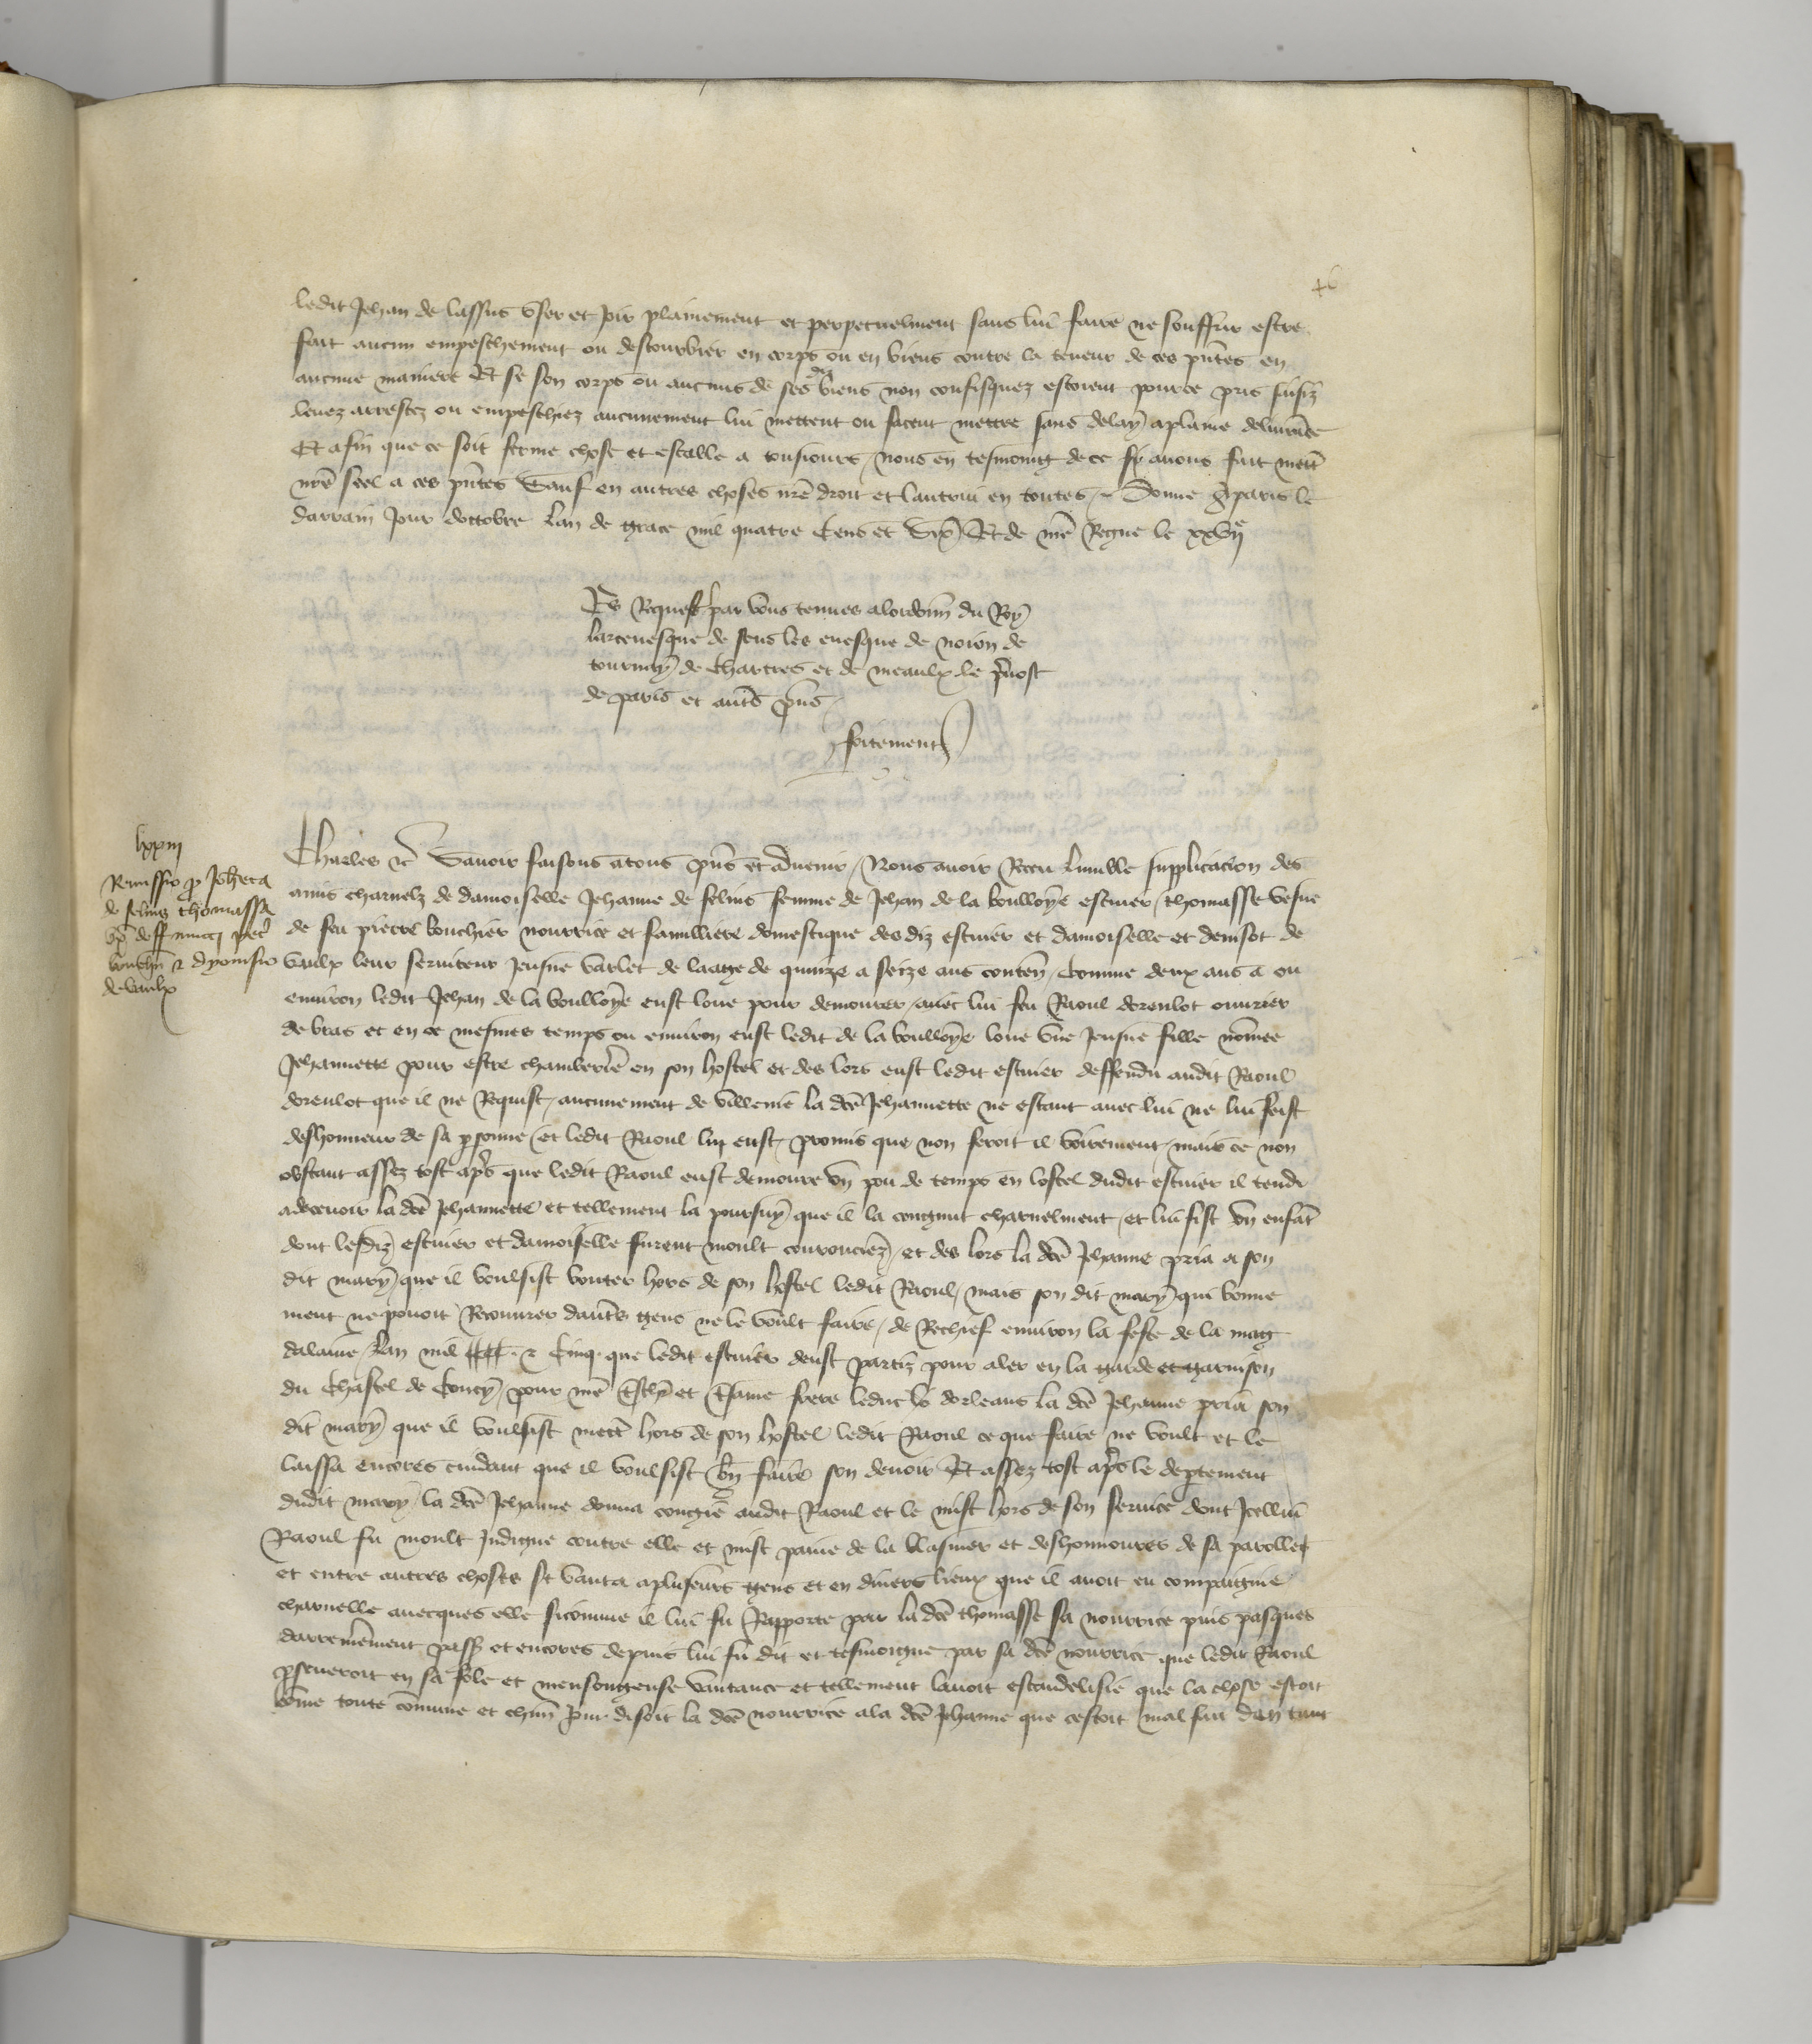 46
ledit Jehan de lassus user et joir plainement et perpetuelment sans lui faire ne souffrir estre
fait aucun empeschement ou destourbier en corps ou en biens contre la teneur de ces pñtes en
aucune maniere Et se son corps ou aucuns de ses diz biens non confisquez estoient pource pris saisiz
levez arrestez ou empeschiez aucunement lui mettent ou facent mettre sans delay aplaine delivrāce
Et afin que ce soit ferme chose et estable a tousiours / nous en tesmoing de ce avons fait mettr̄
nr̄e seel a ces pñtes Sauf en autres choses nr̄e droit et lautrui en toutes / Donne a paris le
darrain Jour doctobre Lan de grace mil quatre Cens et Six Et de nr̄e Regne le xxvij
Es Requestes par vous tenues alordonn̄ du Roy
larcevesque de sens les evesque de noion de
tournay de chartres et de meaulx le p̄vost
de paris et autr̄s p̄ns
fortement
lxxiij
Remissio p Joh̄eta
de felins thomassa
deffuncti pet̄
bouchī & dyonisio
de vaulx
Charles &c̄ Savoir faisons atous p̄ns et advenir / Nous avoir Receu lumble supplicacion des
amis charnelz de damoiselle Jehanne de felins femme de Jehan de la boulloye escuier / thomasse vesve
de feu pierre bouchier nourrice et familliere domestique desdiz escuier et damoiselle et denisot de
vaulx leur serviteur Jeusne varlet de laage de quinze a seize ans conten̄ / Comme deux ans a ou
environ ledit Jehan de la boulloye eust loue pour demourer / avec lui feu Raoul dorenlot ouvrier
de bras et en ce mesmes temps ou environ eust ledit de la boulloye loue une Jeusne fille nōmee
Jehannette pour estre chamberiere en son hostel et des lors eust ledit escuier deffendu audit Raoul
dorenlot que il ne Requist / aucunement de villenie la dc̄e Jehannette ne estant avec lui ne lui feist
deshonneur de sa p̄sonne / et ledit Raoul luy eust / promis que non feroit il voirement / mais ce non
obstant assez tost ap̄s que ledit Raoul eust demoure un pou de temps en lostel dudit escuier il tendi
adecevoir la dc̄e Jehannette et tellement la poursuy que il la congnut charnelment / et lui fist un enfāt
dont lesdiz escuier et damoiselle furent moult courouciez / et des lors la dc̄e Jehanne pria a son
dit mary que il voulsist bouter hors de son hostel ledit Raoul / mais son dit mary qui bonne
ment ne povoit Recouvrer dautr̄s gens ne le voult faire / de Rechief environ la feste de la mag
dalaine / Lan mil cccc & Cinq que ledit escuier deust partir pour aler en la garde et garnison
du Chastel de Coucy / pour nr̄e et frere leduc dorleans la dc̄e Jehanne pria son
dit mary que il voulsist mettr̄ hors de son hostel ledit Raoul ce que faire ne voult et le
laissa encores cuidant que il voulsist bn̄ faire son devoir Et assez tost ap̄s le dep̄tement
dudit mary / la dc̄e Jehanne donna congie audit Raoul et le mist hors de son service dont Icellui
Raoul fu moult Indigne contre elle et mist paine de la blasmer et deshonnourer de sa parolle
et entre autres choses se vanta aplusieurs gens et en divers lieux que il avoit eu compaignie
charnelle avecques elle sicomme il lui fu Rapporte par la dc̄e thomasse sa nourrice puis pasques
darrenement pass̄ et encores depuis lui fu dit et tesmoigne par sa dc̄e nourrice que ledit Raoul
p̄severoit en sa fole et mensongeuse vantance et tellement lavoit escandelisie que la chose estoit
cōme toute cōmune et disoit la dc̄e nourrice ala dc̄e Jehanne que cestoit mal fait den tant